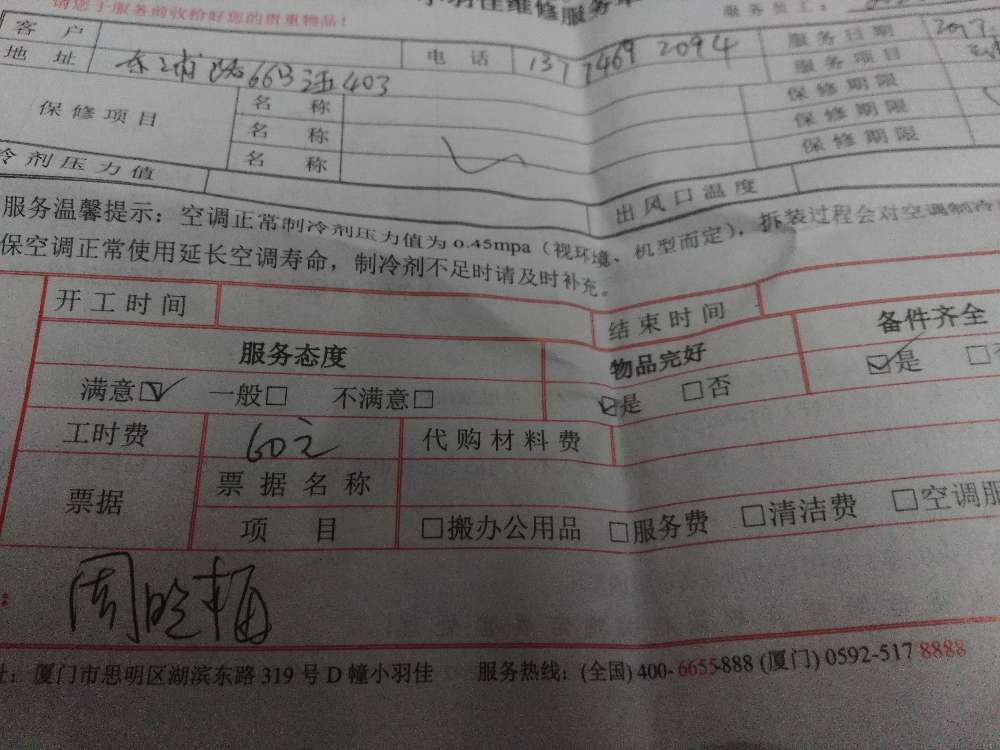 请您于服务前收拾好您的贵重物品！ 小羽佳维修服务单 服务员工：
客户 电话 137 7469 2094 服务日期 2017.
地址 东浦路66号之五403 服务项目
保修项目 名称 保修期限
名称 保修期限
名称 保修期限
冷剂压力值 出风口温度
服务温馨提示：空调正常制冷剂压力值为0.45mpa（视环境、机型而定），拆装过程会对空调制冷
保空调正常使用延长空调寿命，制冷剂不足时请及时补充。
开工时间 结束时间
服务态度 物品完好 备件齐全
满意☑ 一般□ 不满意□ ☑是 □否 ☑是 □
工时费 60元 代购材料费
票据 票据名称
项目 □搬办公用品 □服务费 □清洁费 □空调服
周晓梅
址：厦门市思明区湖滨东路319号D幢小羽佳 服务热线：(全国) 400-6655-888 (厦门) 0592-517 8888